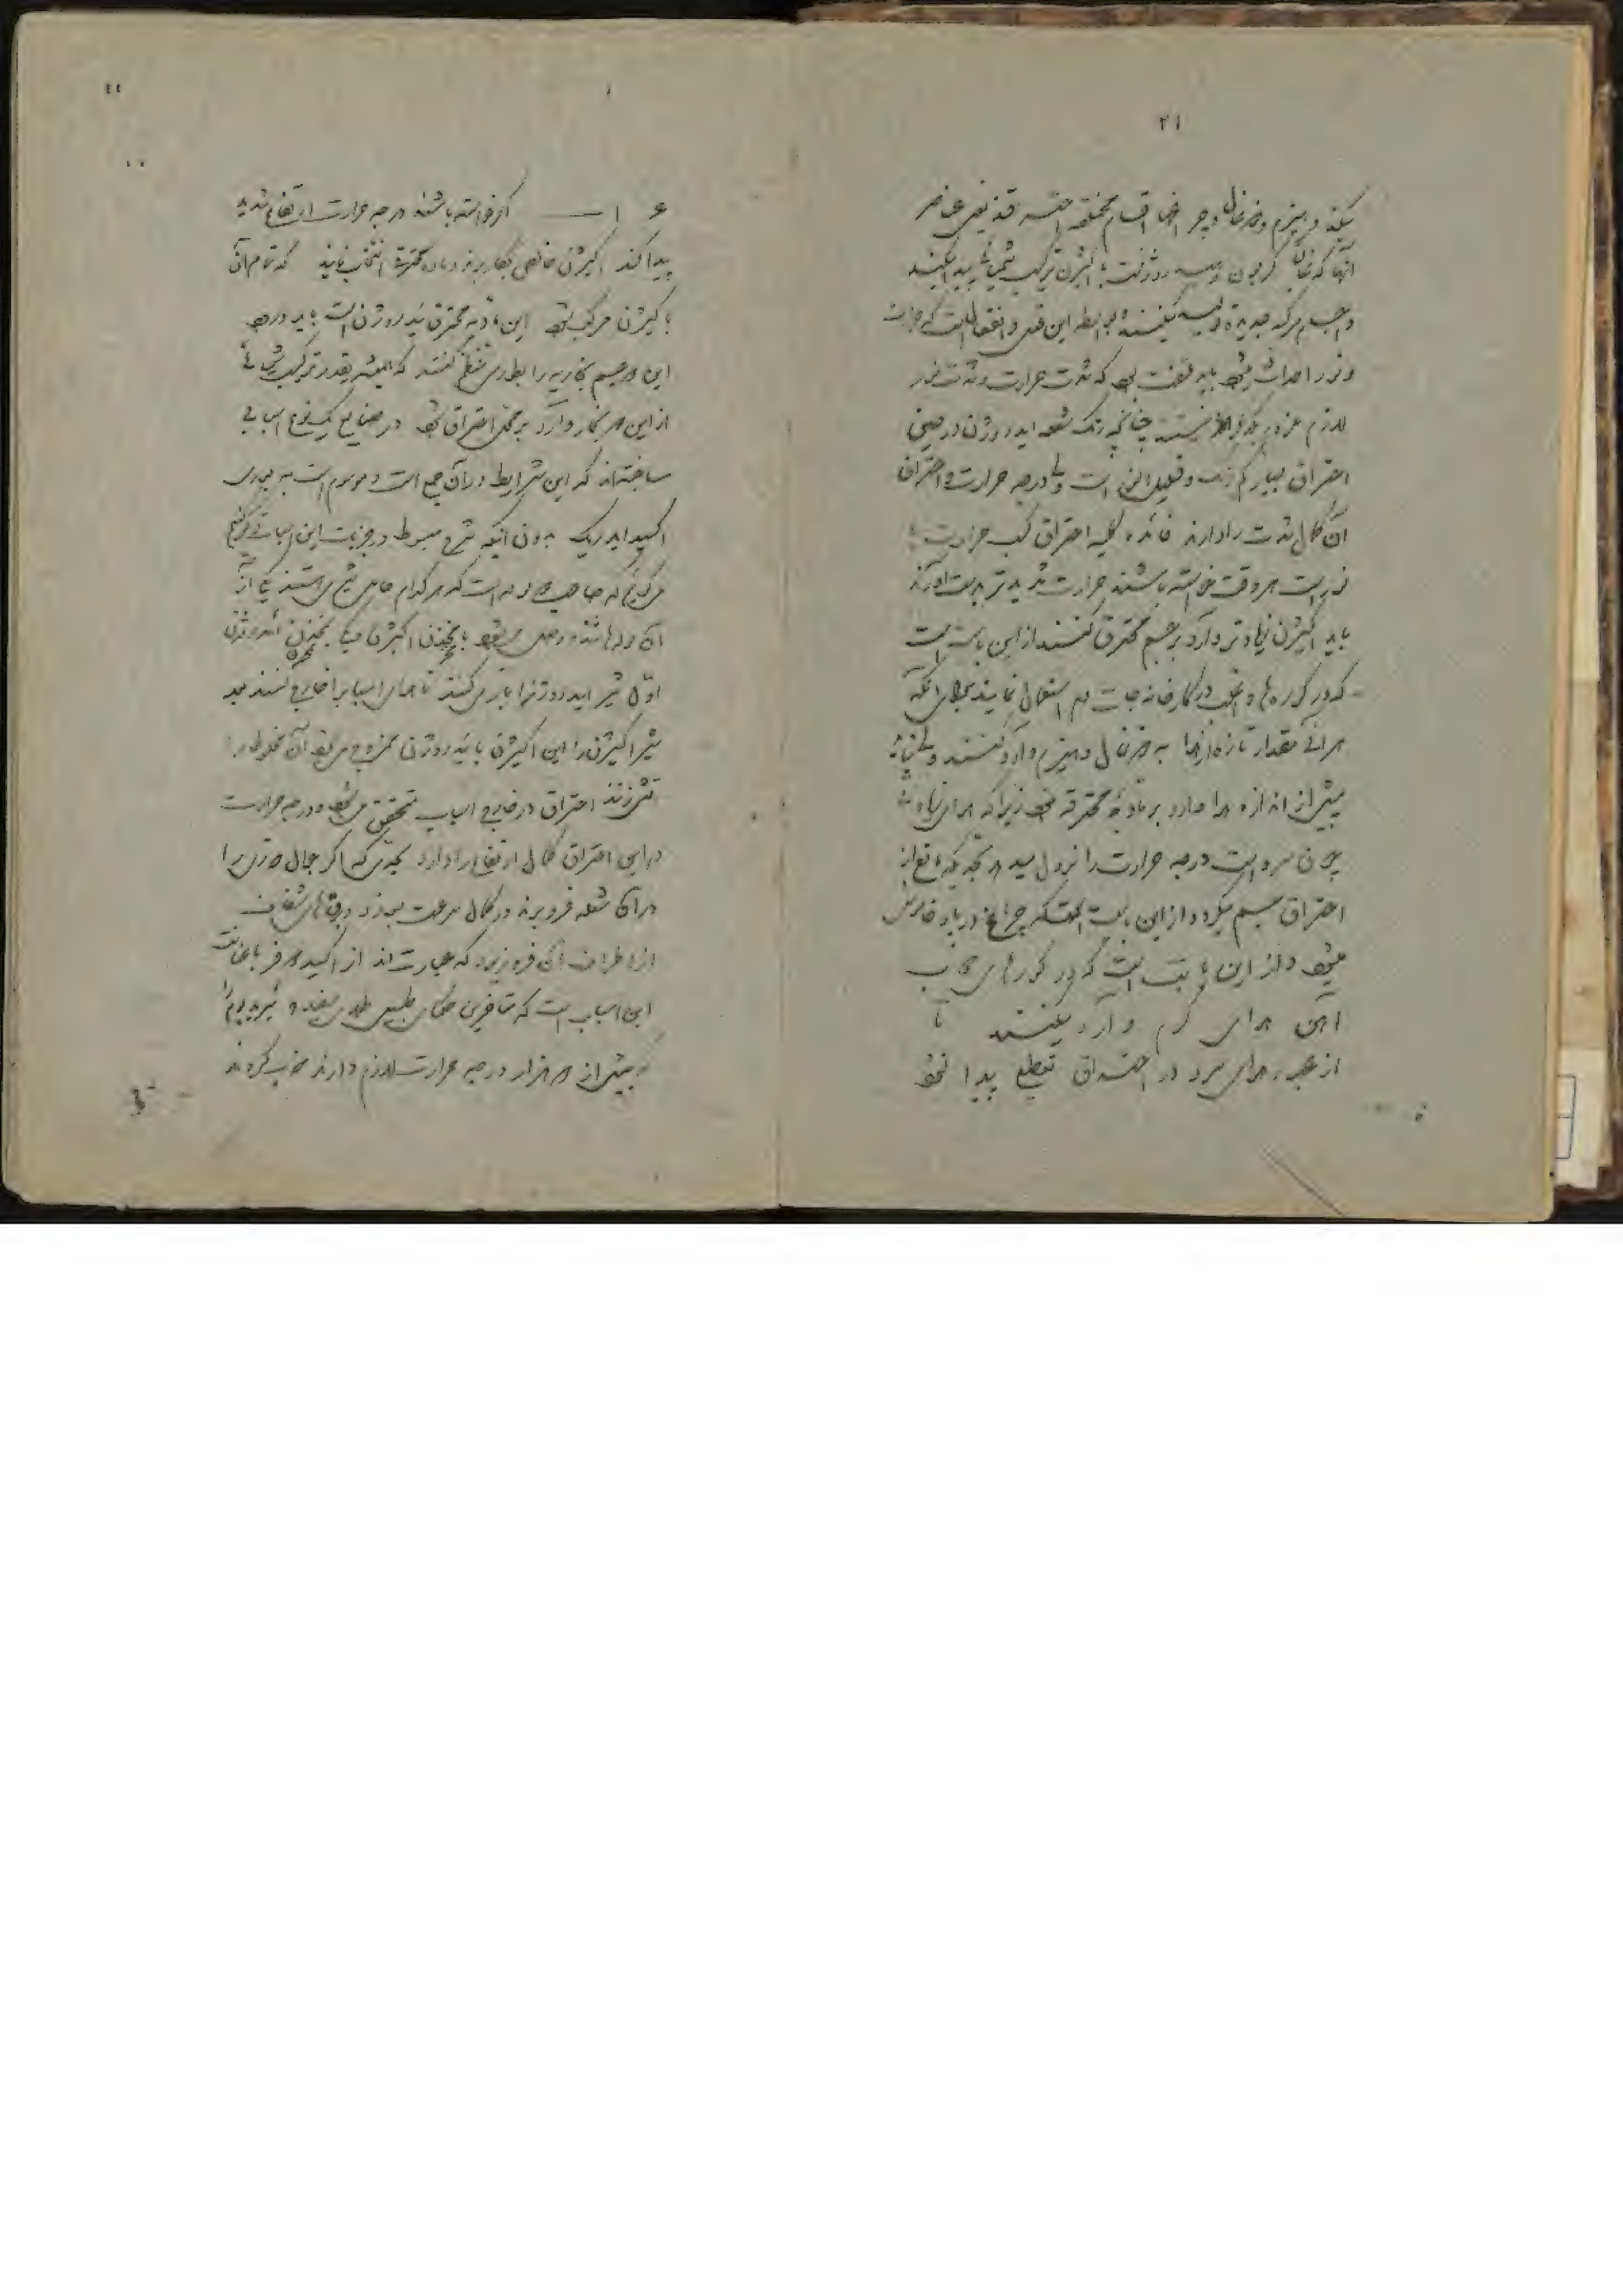 ۲۱
میکند و هیزم و ذغال و چراغها اقسام مختلفه احتراقند یعنی عناصر
آنها که غالباً کربون و ئیدروژن است با اکسیژن ترکیب شیمیائی پیدا میکنند
و اجسام مرکبه جدیده تولید میکنند و بواسطه این فعل و انفعال است که حرارت
و نور احداث میشود باید ملتفت بود که شدت حرارت و شدت نور
لازم ملزوم یکدیگر نیستند چنانچه رنگ شعله ایدروژن در حین
احتراق بسیار کم رنگ و قلیل النور است ولی درجه حرارت و احتراق
آن کمال شدت را دارند فائده کلیه احتراق کسب حرارت یا
نور است هر وقت خواسته باشند حرارت شدیدتر بدست آورند
باید اکسیژن زیادتر وارد بر جسم محترق کنند از این بابت است
که در کوره‌ها و اغلب در کارخانه جات دم استعمال نمایند برای آنکه
هر آنی مقدار تازه از هوا به ذغال و هیزم وارد کنند ولی نباید
بیش از اندازه هوا وارد بر مادهٔ محترقه شود زیرا که هوای زیاد
چون سرد است درجه حرارت را نزول میدهد بحدیکه مانع از
احتراق جسم میگردد از این بابت است که چراغ در باد خاموش
میشود و از این بابت است که در کوره‌های ذوب
آهن هوای گرم وارد میکنند تا
از عبور هوای سرد در احتراق تقطیع پیدا نشود
۲۲
۱ — اگر خواسته باشند درجه حرارت ارتفاع شدید
پیدا کند اکسیژن خالص بکار برند و ماده محترقه انتخاب نمایند که تمام آن
با اکسیژن مرکب شود این مادهٔ محترق ئیدروژن است باید ورود
این دو جسم بخاریه را بطوری منظم کنند که همیشه بقدر ترکیب شیمیائی
از این دو بخار وارد بر محل احتراق شود در صنایع یک نوع اسبابی
ساخته‌اند که این شرایط در آن جمع است و موسوم است به بوری
اکسید ایدریک بدون آنکه شرح مبسوط در جزئیات این اسباب ذکر کنیم
میگوئیم که صاحب دو لوله است که هر کدام حامل شیری هستند یکی از
آن لوله‌ها وصل میشود با مخزن اکسیژن و دیگری بمخزن ئیدروژن
اول شیر ایدروژن را باز میکنند تا هوای اسباب را خارج کنند بعد
شیر اکسیژن را این اکسیژن با ئیدروژن ممزوج میشود آن مخلوط را
آتش زنند احتراق در خارج اسباب متحقق میشود و درجه حرارت
در این احتراق کمال ارتفاع را دارد بحدی که اگر
در آن شعله فرو برند در کمال سرعت بسوزد و جرقه‌های شفاف
از اطراف آن فرو ریزد که عبارت‌اند از اکسید دو فر با اعانت
این اسباب است که متأخرین حکمای طبیعی طلای سفید و ئیریدیوم را
که بیش از دو هزار درجه حرارت لازم دارند ذوب کردند